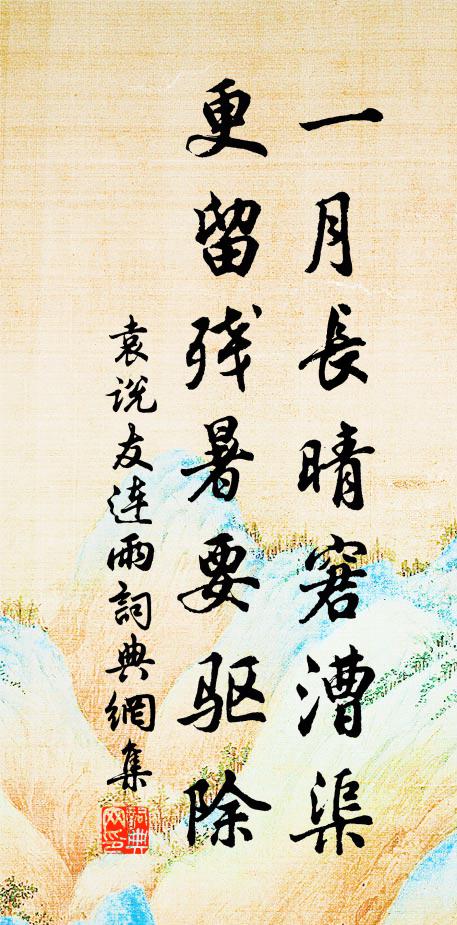 一月長晴窘漕渠
更留残暑要驱除
袁说友連雨詞典網集
詞典网印